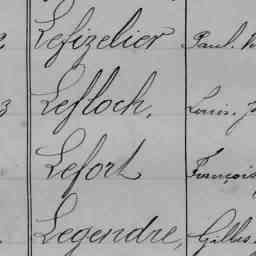 Lefizelier Paul.
Lefloch, Louis.
Lefort François
Legendre, Gilles